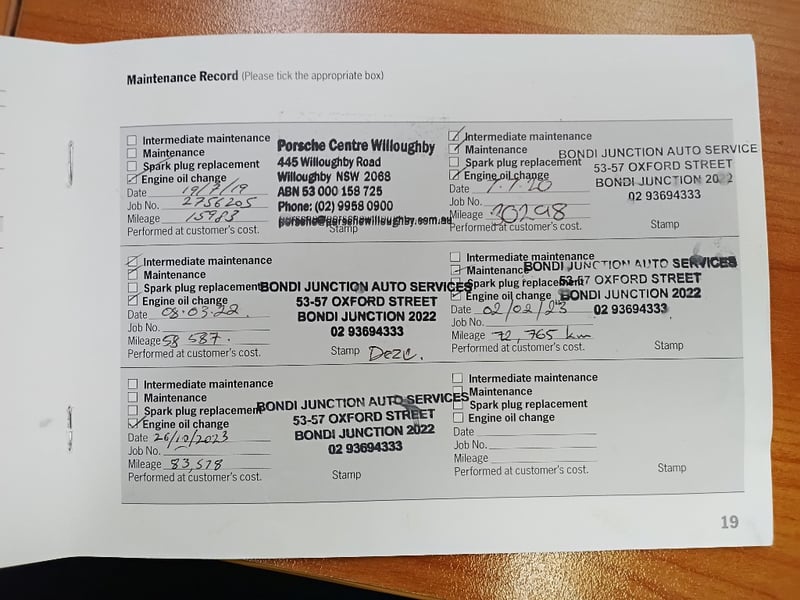 Maintenance Record (Please tick the appropriate box)
Intermediate maintenance
Maintenance
Spark plug replacement
Engine oil change
Date 19/7/19
Job No. 2756205
Mileage 15983
Performed at customer's cost.
Porsche Centre Willoughby
445 Willoughby Road
Willoughby NSW 2068
ABN 53 000 158 725
Phone: (02) 9958 0900
porsche@porschewilloughby.com.au
Stamp
Intermediate maintenance
Maintenance
Spark plug replacement
Engine oil change
Date 7.7.20
Job No.
Mileage 30298
Performed at customer's cost.
BONDI JUNCTION AUTO SERVICE
53-57 OXFORD STREET
BONDI JUNCTION 2022
02 93694333
Stamp
Intermediate maintenance
Maintenance
Spark plug replacement
Engine oil change
Date 08.03.22.
Job No.
Mileage 58 587.
Performed at customer's cost.
BONDI JUNCTION AUTO SERVICES
53-57 OXFORD STREET
BONDI JUNCTION 2022
02 93694333
Stamp
Intermediate maintenance
Maintenance
Spark plug replacement
Engine oil change
Date 02/02/23
Job No.
Mileage 72,765 km
Performed at customer's cost.
BONDI JUNCTION AUTO SERVICES
53-57 OXFORD STREET
BONDI JUNCTION 2022
02 93694333
Stamp
Intermediate maintenance
Maintenance
Spark plug replacement
Engine oil change
Date 26/10/2023
Job No.
Mileage 83,578
Performed at customer's cost.
BONDI JUNCTION AUTO SERVICES
53-57 OXFORD STREET
BONDI JUNCTION 2022
02 93694333
Stamp
Intermediate maintenance
Maintenance
Spark plug replacement
Engine oil change
Date
Job No.
Mileage
Performed at customer's cost.
Stamp
19